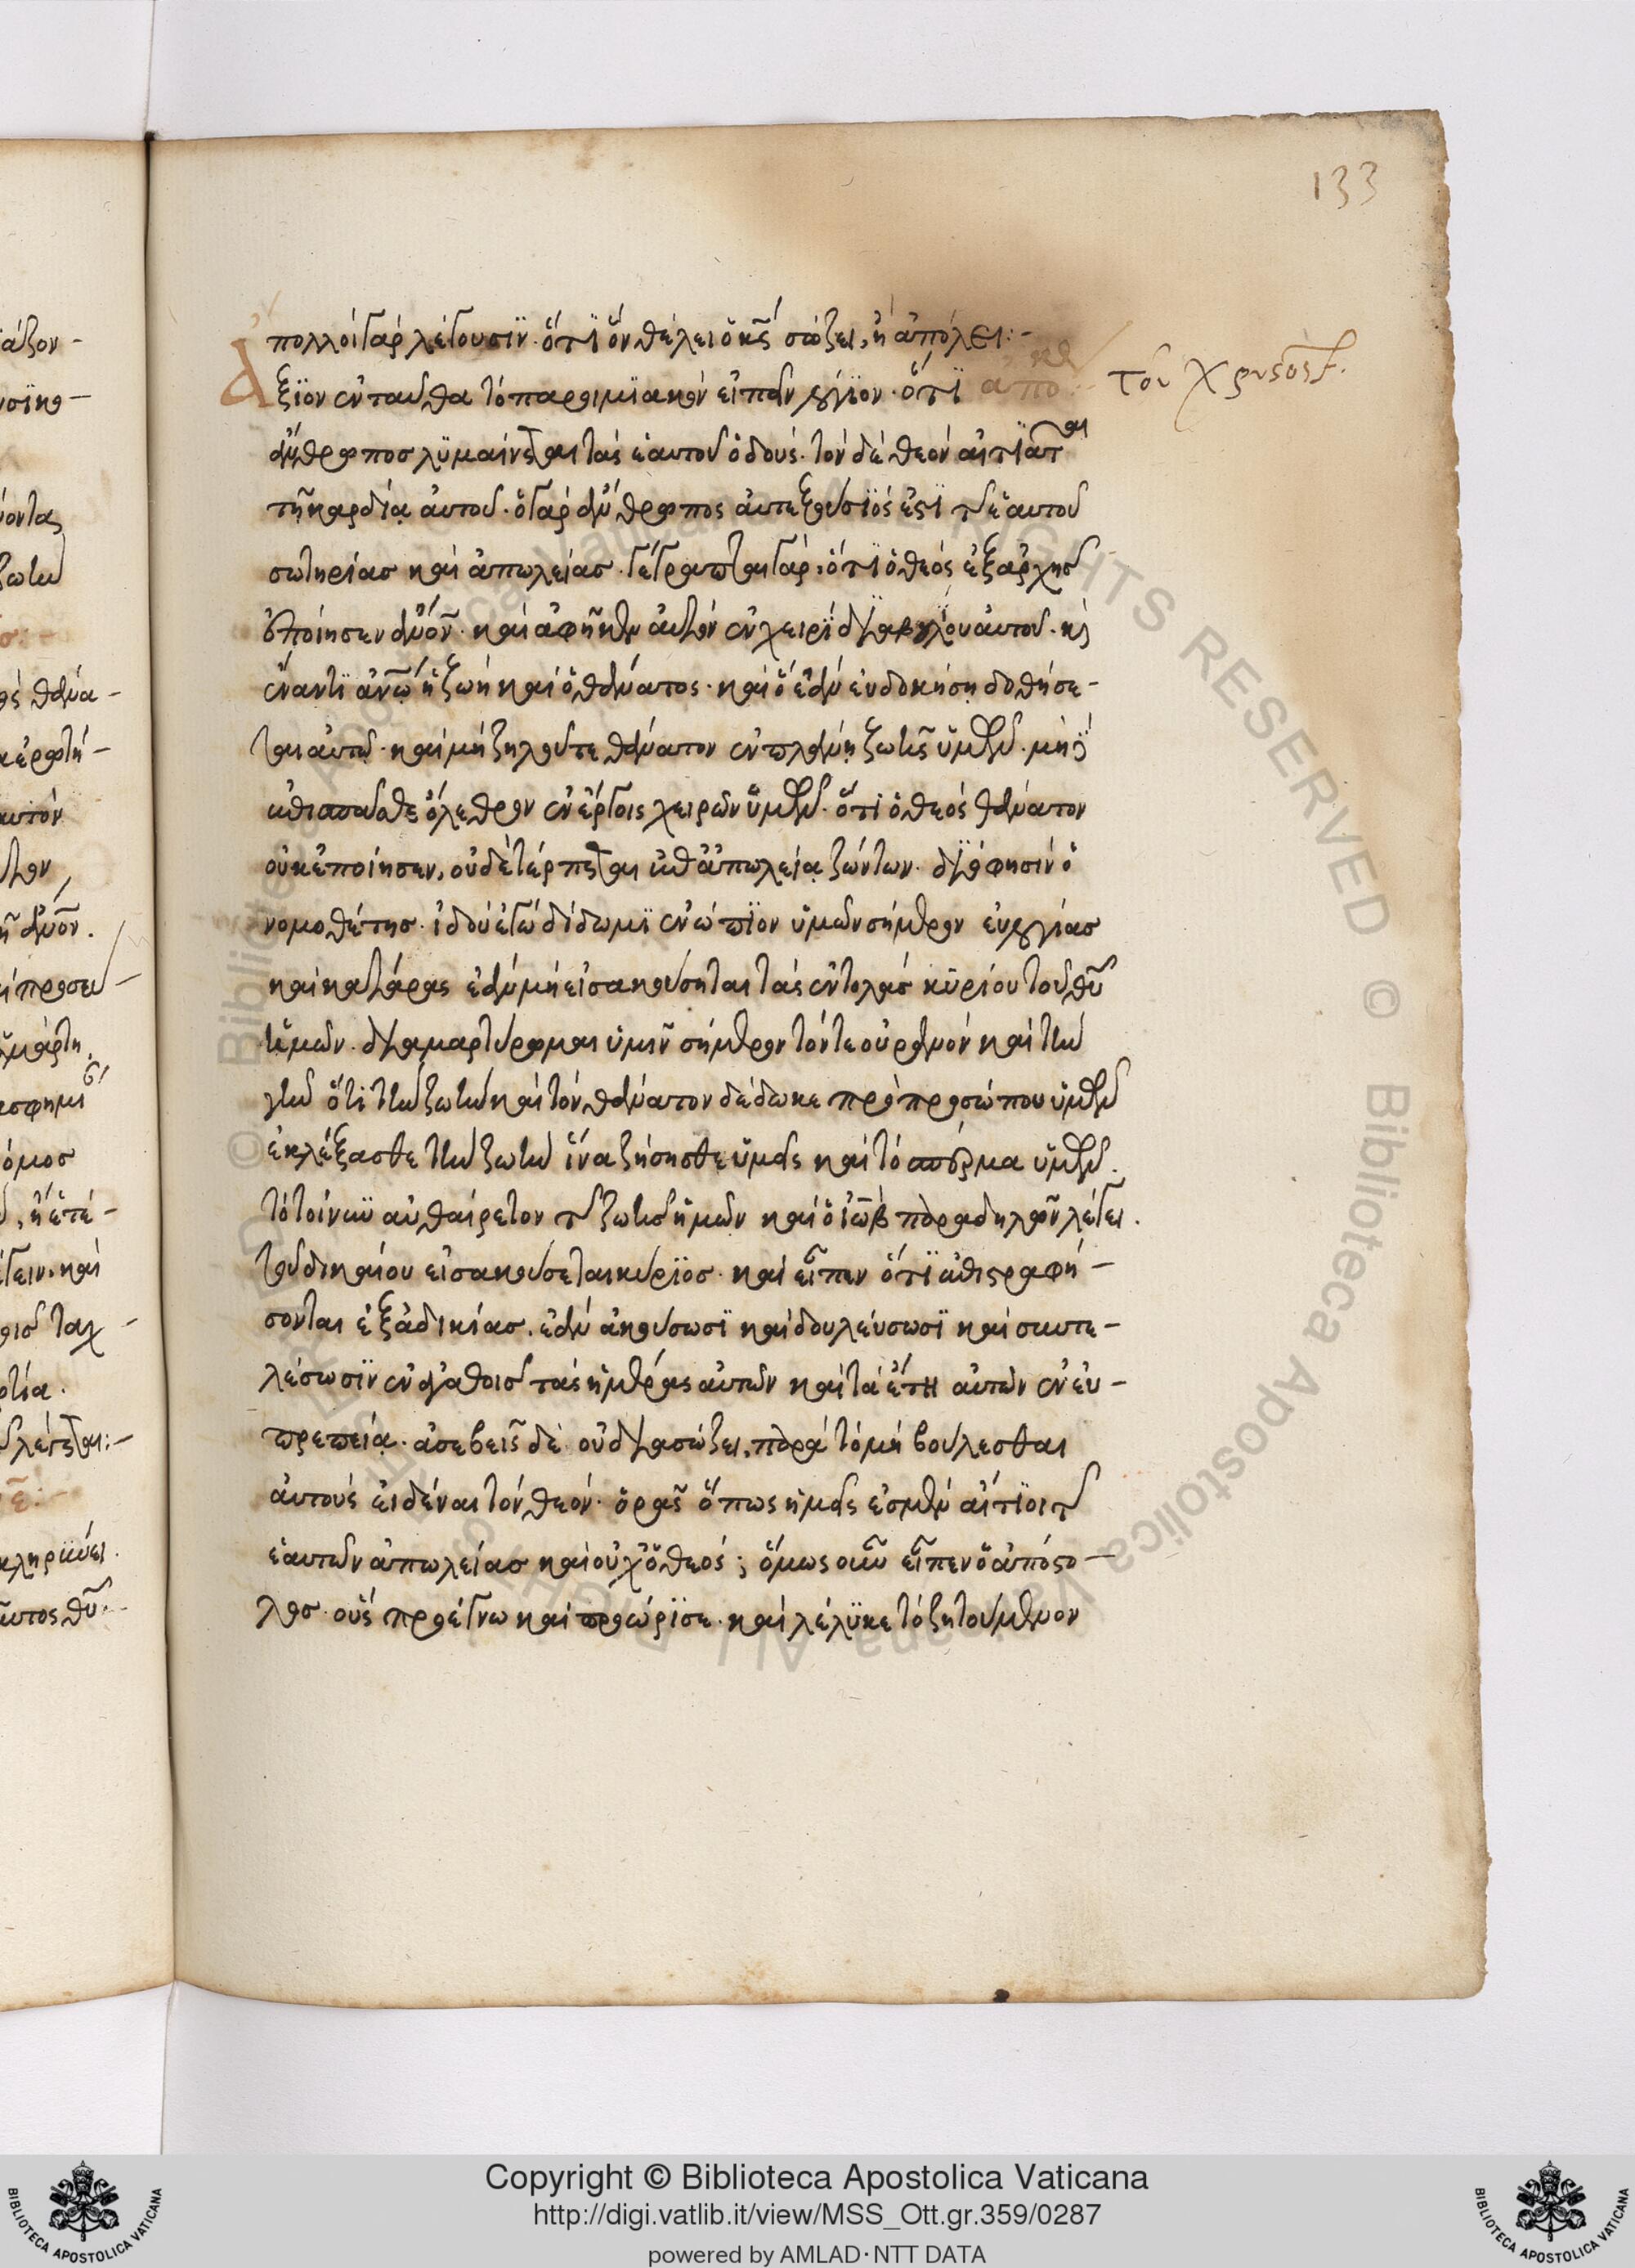 133
πολλοὶ γὰρ λέγουσϊν· ὅτϊ ὃν θέλει ὁ κς σώζει, ἢ ἀπόλει:-
ἄξϊον ἐνταῦθα τὸ παροιμϊακὸν εἰπεῖν λόγϊον· ὅτϊ ἀπο
του χρυσοστ.
ἄνθρωπος λϋμαίνεται τὰς ἑαυτοῦ ὁδούς· τὸν δὲ θεὸν αἰτϊᾶται
τῆ καρδία αὐτοῦ· ὁ γὰρ ἄνθρωπος αὐτεξούσϊός ἐστϊ τῆς ἑαυτοῦ
σωτηρίας καὶ ἀπωλείας· γέγραπται γάρ, ὅτϊ ὁ θεὸς ἐξαρχῆς
ἐποίησεν ἄνον· καὶ ἀφῆκεν αὐτὸν ἐν χειρὶ διαβουλίου αὐτοῦ· κ
ἔναντϊ ἀνων ἡ ζωὴ καὶ ὁ θάνατος· καὶ ὃ ἐὰν εὐδοκήση δοθήσε-
ται αὐτῶ· καὶ μὴ ζηλοῦτε θάνατον ἐν πλάνη ζωῆς ὑμῶν· μὴ δὲ
ἐπισπᾶσθε ὄλεθρον ἐν ἔργοις χειρῶν ὑμῶν· ὅτϊ ὁ θεὸς θάνατον
οὐκ ἐποίησεν, οὐδὲ τέρπεται ἐπ ἀπωλεία ζώντων· διό φησιν ὁ
νομοθέτης· ἰδοὺ ἐγὼ δίδωμϊ ἐνώπϊον ὑμῶν σήμερον εὐλογίας
καὶ κατάρας ἐὰν μὴ εἰσακούσηται τὰς ἐντολὰς κϋρίου τοῦ θυ
ὑμῶν· διαμαρτύρομαι ὑμῖν σήμερον τόν τε οὐρανὸν καὶ τὴν
γῆν ὅτι τὴν ζωὴν καὶ τὸν θάνατον δέδωκε πρὸ προσώπου ὑμῶν
ἐκλέξασθε τὴν ζωὴν ἵνα ζήσησθε ὑμᾶς καὶ τὸ σπέρμα ὑμῶν.
τὸ τοίνυν αὐθαίρετον τῆς ζωῆς ἡμῶν καὶ ὁ ἰὼβ παραδηλῶν λέγει.
τοῦ δικαίου εἰσακούσεται κύρϊος· καὶ εἶπεν ὅτϊ ἐπιστραφή-
σονται ἐξ ἀδικίας· ἐὰν ἀκούσωσϊ καὶ δουλεύσωσϊ καὶ συντε-
λέσωσϊν ἐν ἀγαθοῖς τὰς ἡμέρας αὐτῶν καὶ τὰ ἔτη αὐτῶν ἐν εὐ-
πρεπεία· ἀσεβεῖς δὲ οὐ διασώζει, παρὰ τὸ μὴ βούλεσθαι
αὐτοὺς εἰδέναι τὸν θεόν· ὁρᾶς ὅπως ἡμᾶς ἐσμὲν αἴτϊοι τῆς
ἑαυτῶν ἀπωλείας καὶ οὐχ ὁ θεός; ὅμως οὖν εἶπεν ὁ ἀπόστο-
λος· οὓς προέγνω καὶ προώρϊσε· καὶ λέλϋκε τὸ ζητούμενον